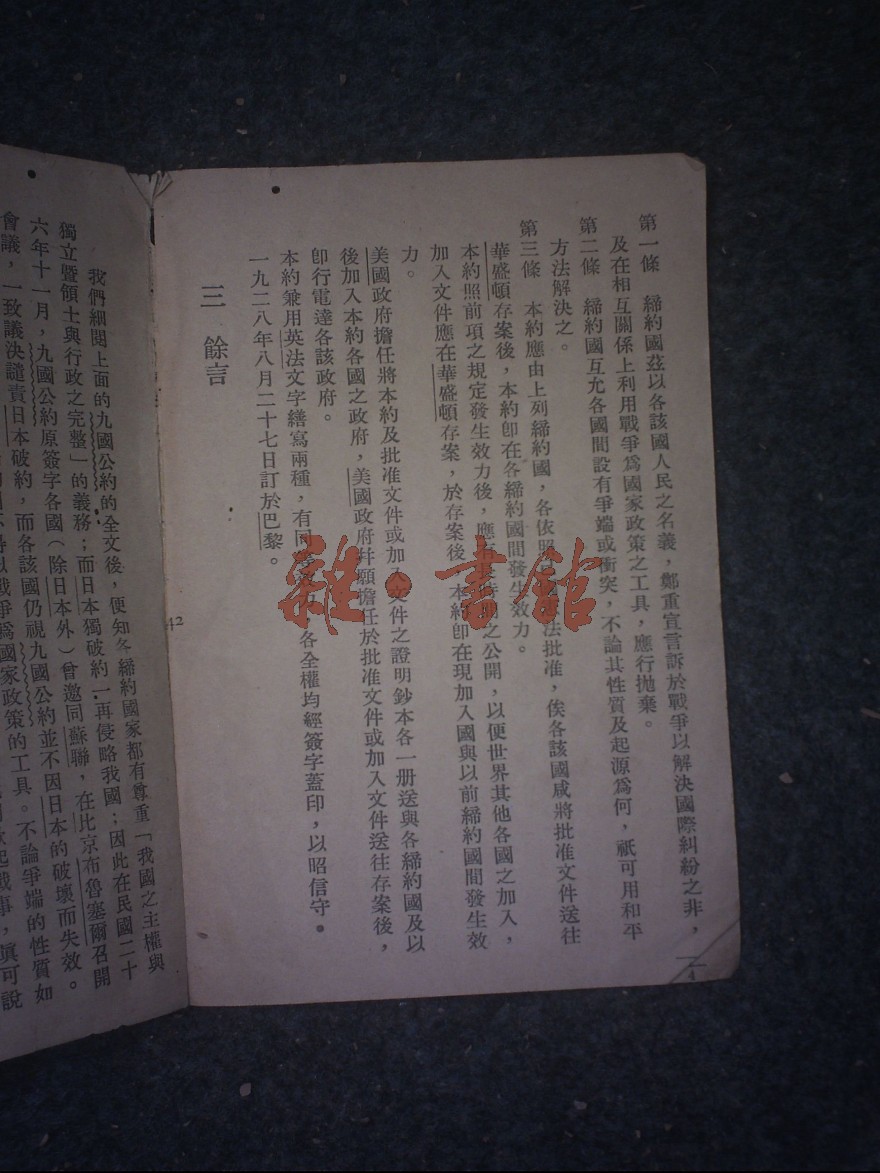 第一條　締約國茲以各該國人民之名義，鄭重宣言訴於戰爭以解決國際糾紛之非，
及在相互關係上利用戰爭爲國家政策之工具，應行拋棄。
第二條　締約國互允各國間設有爭端或衝突，不論其性質及起源爲何，祇可用和平
方法解決之。
第三條　本約應由上列締約國，各依照法批准，俟各該國咸將批准文件送往
華盛頓存案後，本約卽在各締約國間發生效力。
本約照前項之規定發生效力後，應有之公開，以便世界其他各國之加入，
加入文件應在華盛頓存案，於存案後，本約卽在現加入國與以前締約國間發生效
力。
美國政府擔任將本約及批准文件或加入文件之證明鈔本各一册送與各締約國及以
後加入本約各國之政府，美國政府幷願擔任於批准文件或加入文件送往存案後，
卽行電達各該政府。
本約兼用英法文字繕寫兩種，有同各全權均經簽字蓋印，以昭信守。
一九二八年八月二十七日訂於巴黎。
三　餘言
4
42
我們細閱上面的九國公約的全文後，便知各締約國家都有尊重「我國之主權與
獨立暨領土與行政之完整」的義務；而日本獨破約一再侵略我國；因此在民國二十
六年十一月，九國公約原簽字各國（除日本外）曾邀同蘇聯，在比京布魯塞爾召開
會議，一致議決譴責日本破約，而各該國仍視九國公約並不因日本的破壞而失效。
戰爭爲國家政策的工具。不論爭端的性質如
戰事，眞可說
雜·書館